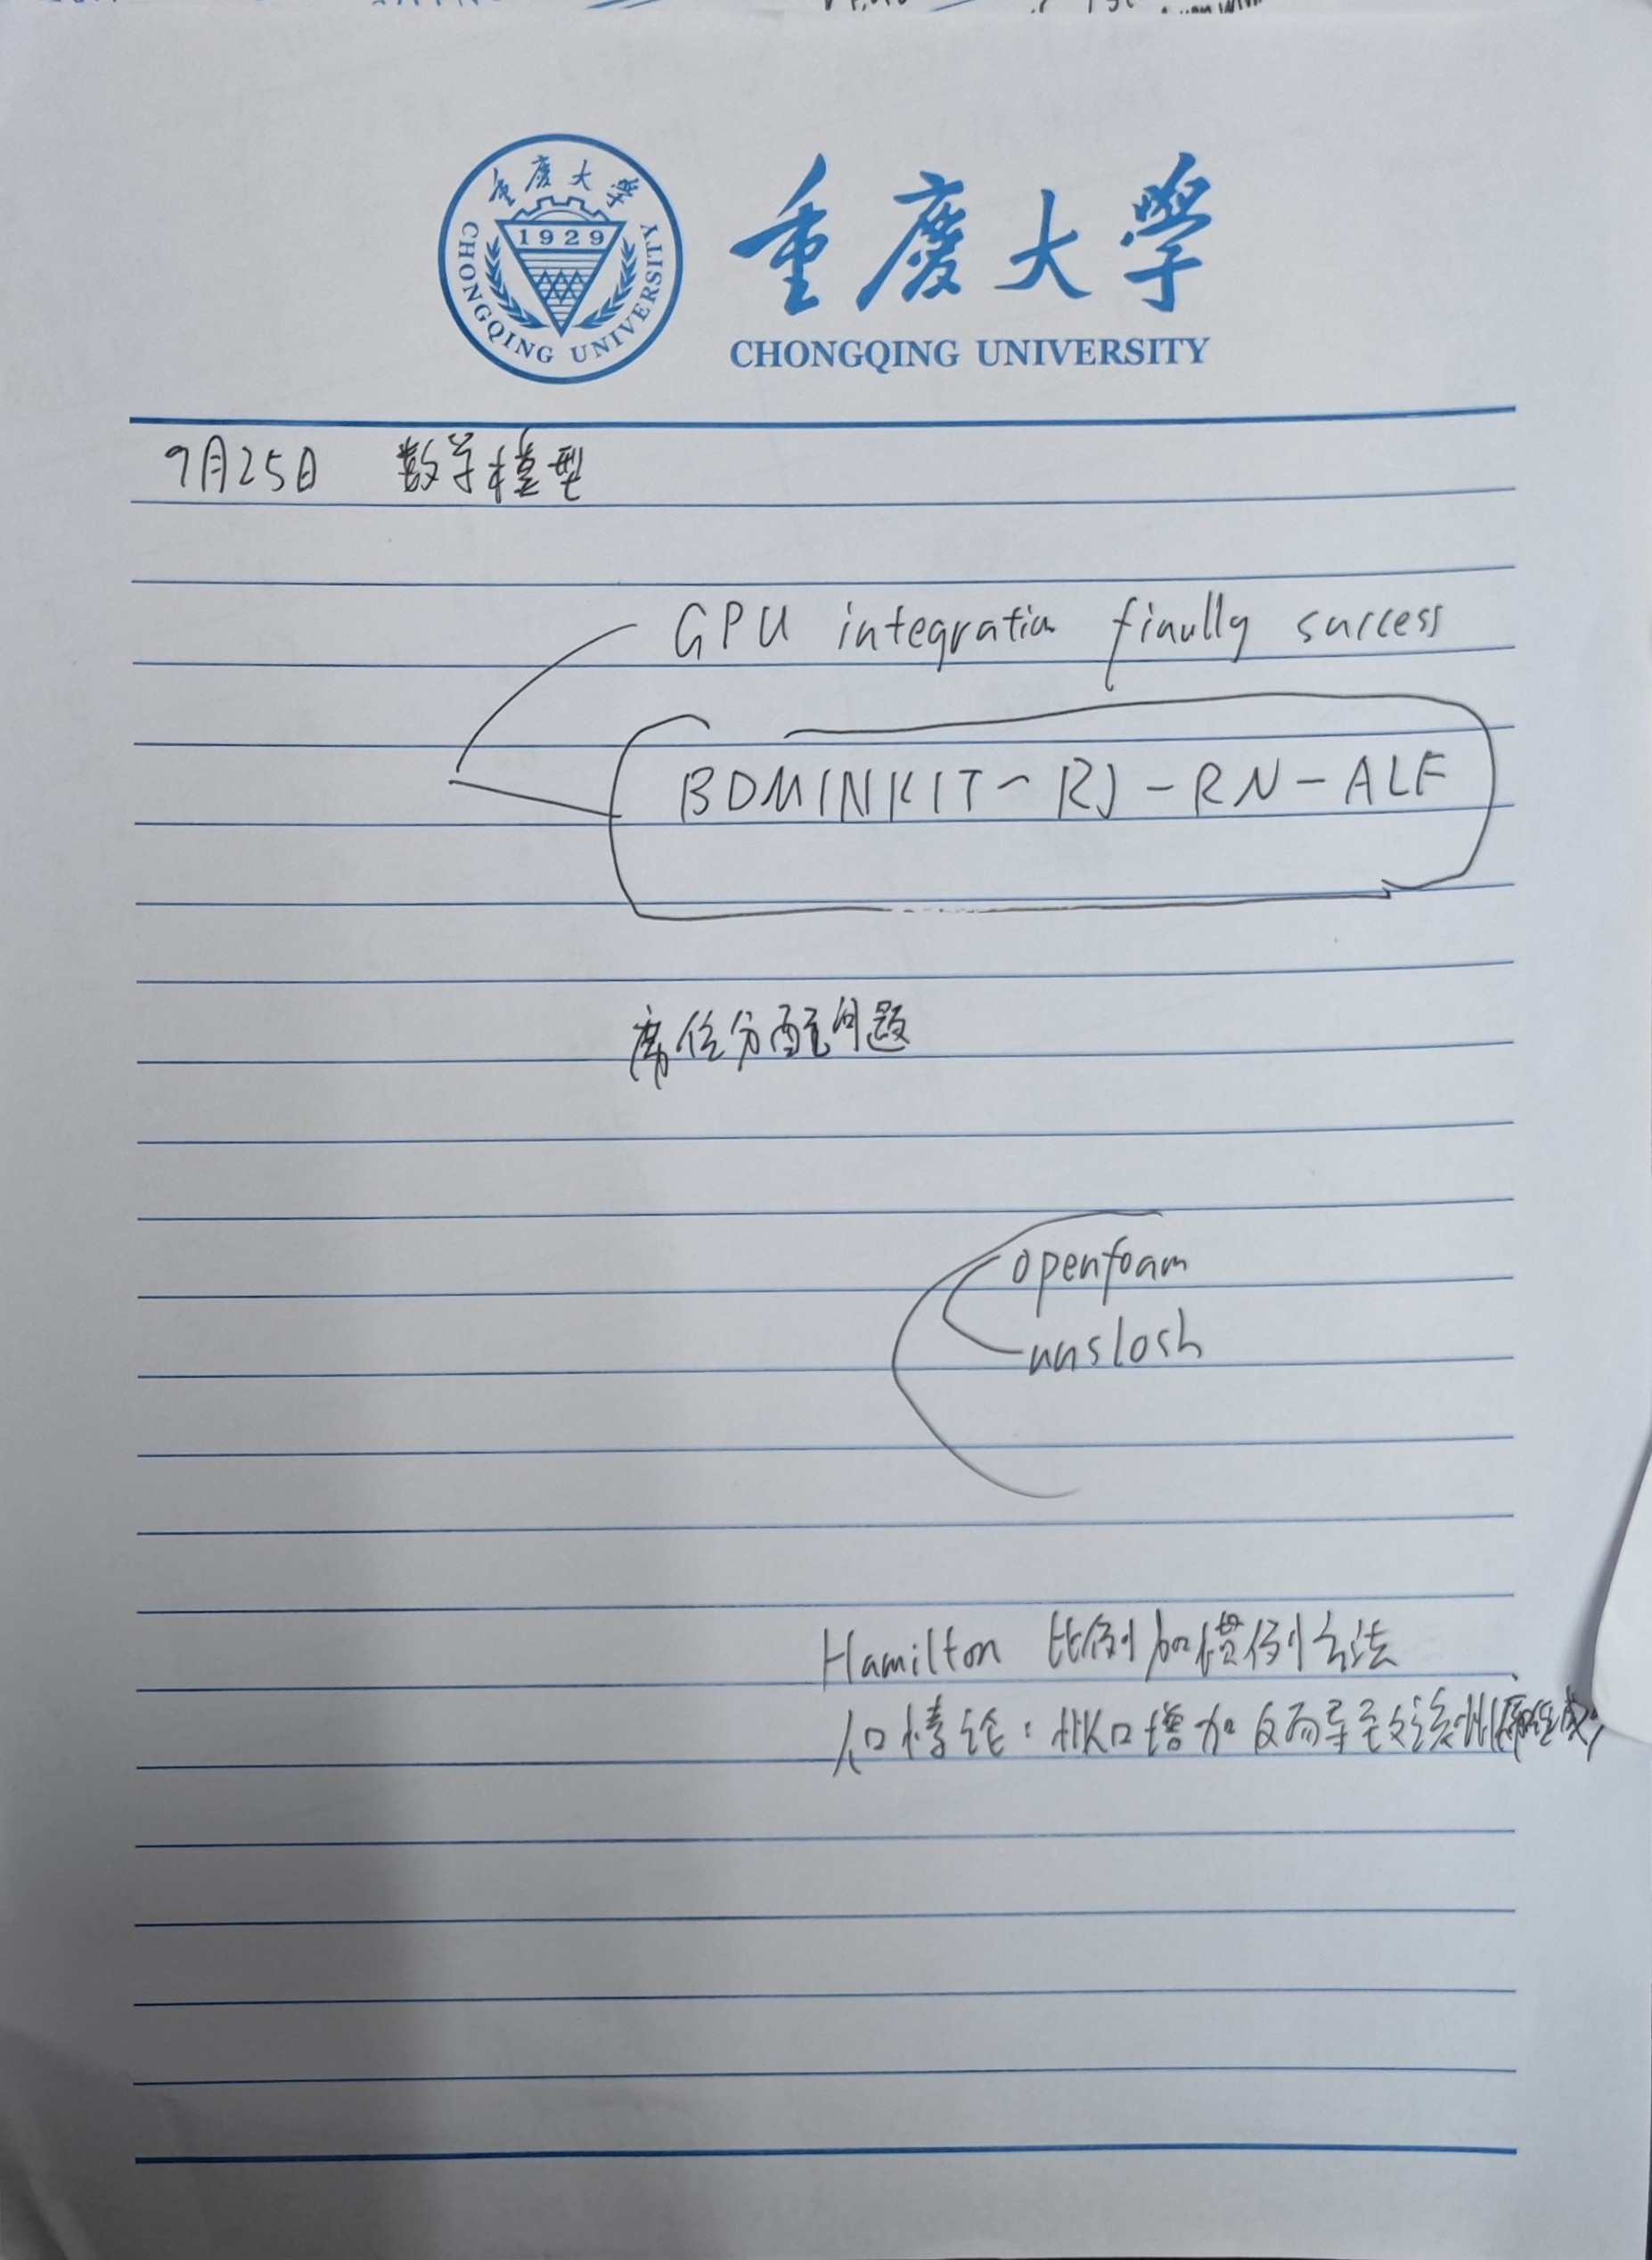 重慶大學
1929
CHONGQING UNIVERSITY
重慶大學
CHONGQING UNIVERSITY
9月25日 数学模型
GPU integration finally success
BDMINKIT-RJ-RN-ALF
席位分配问题
openfoam
unslosh
Hamilton 比例加惯例方法
人口悖论:州人口增加反而导致该州席位减少